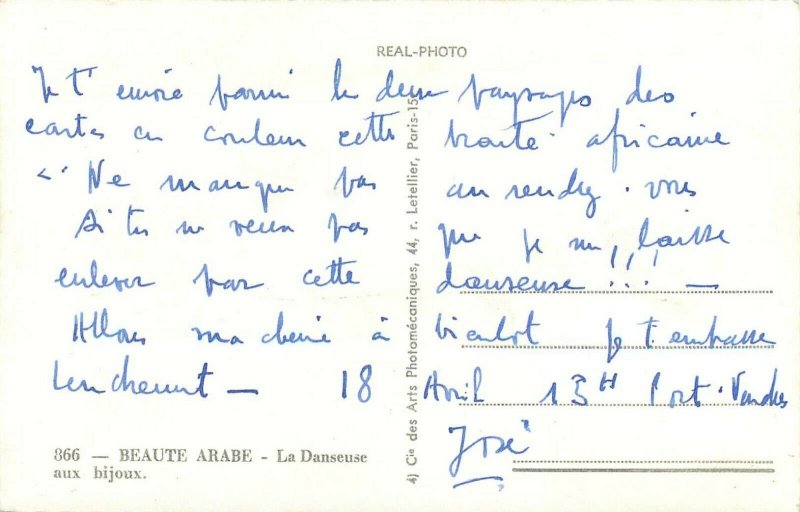 REAL-PHOTO
Je t'envoie parmi le deux paysages des
cartes en couleur cette beauté africaine
"Ne manque pas au rendez-vous
Si tu ne veux pas que je me laisse
enlever par cette danseuse !!! —
Allons ma chérie à bientôt je t'embrasse
tendrement — 18 Avril 13H Port-Vendres
José
866 — BEAUTE ARABE - La Danseuse
aux bijoux.
4) Cie des Arts Photomécaniques, 44, r. Letellier, Paris-15